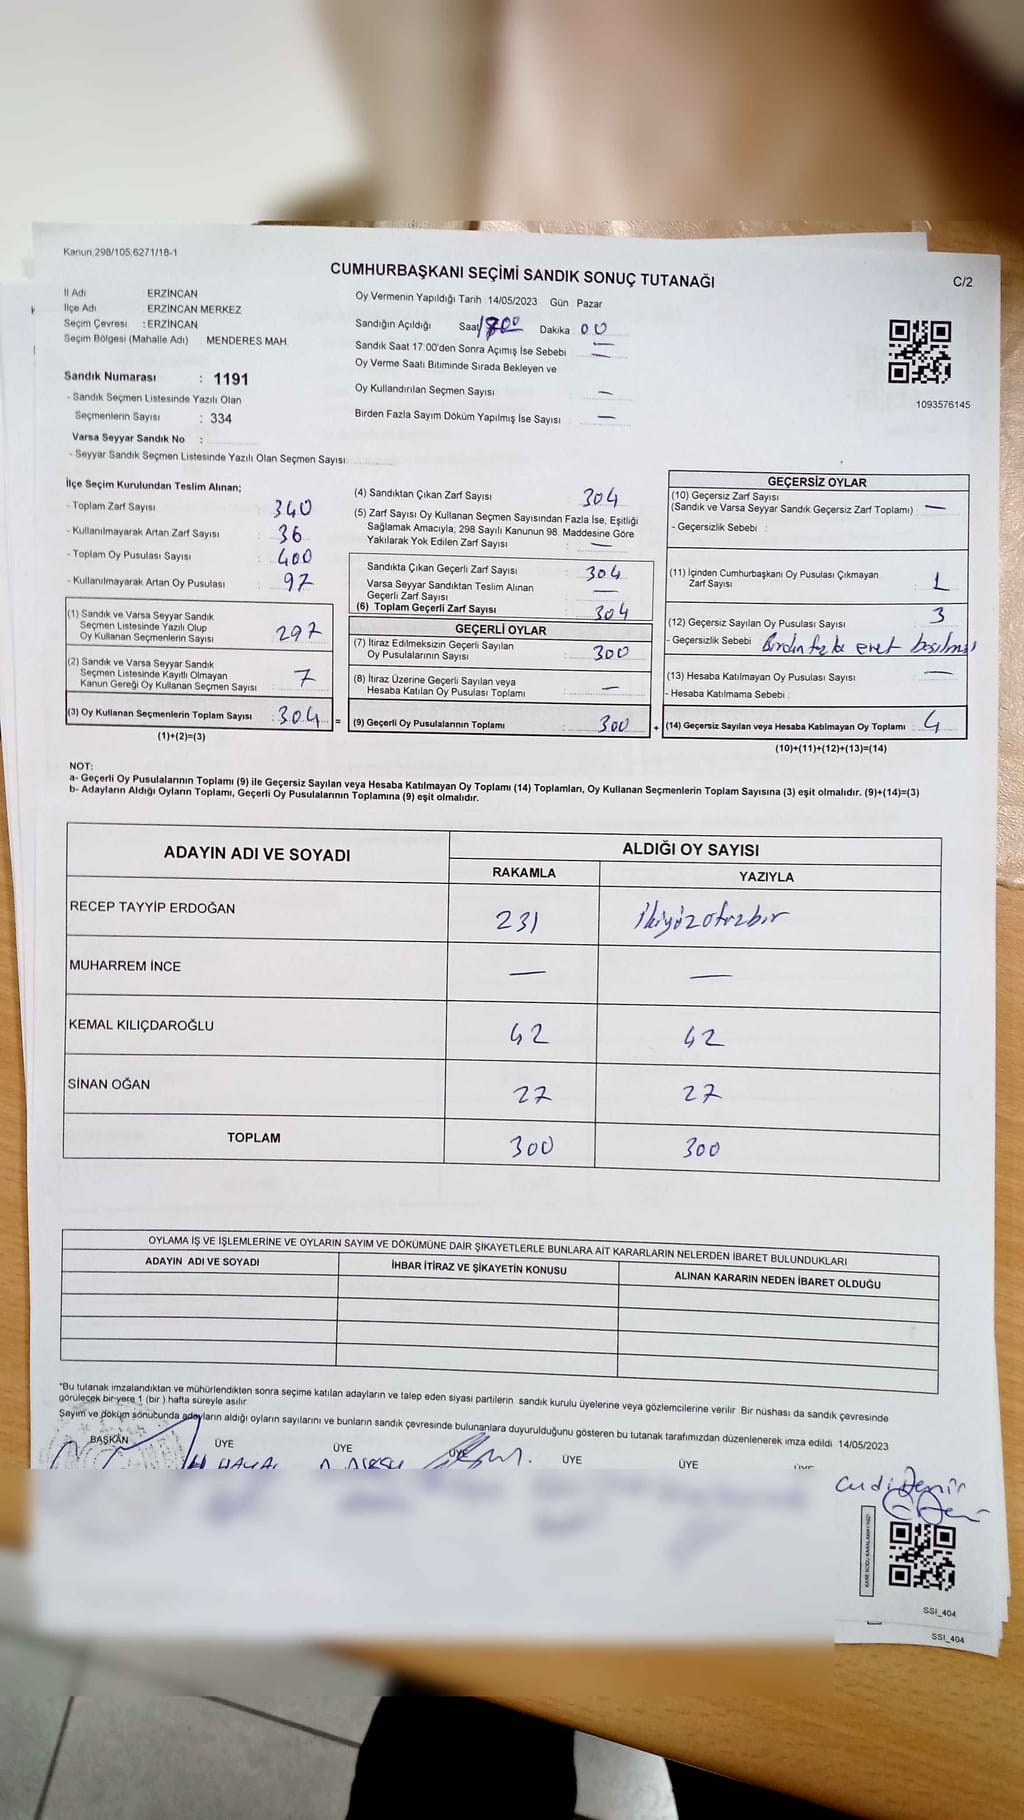 Kanun.298/105,6271/18-1
CUMHURBAŞKANI SEÇİMİ SANDIK SONUÇ TUTANAĞI
C/2
İl Adı ERZİNCAN
İlçe Adı : ERZİNCAN MERKEZ
Seçim Çevresi : ERZİNCAN
Seçim Bölgesi (Mahalle Adı) MENDERES MAH.
Sandık Numarası : 1191
- Sandık Seçmen Listesinde Yazılı Olan
Seçmenlerin Sayısı : 334
Varsa Seyyar Sandık No :
- Seyyar Sandık Seçmen Listesinde Yazılı Olan Seçmen Sayısı:
Oy Vermenin Yapıldığı Tarih 14/05/2023 Gün Pazar
Sandığın Açıldığı Saat Dakika 00
Sandık Saat 17:00'den Sonra Açımış İse Sebebi : —
Oy Verme Saati Bitiminde Sırada Bekleyen ve
Oy Kullandırılan Seçmen Sayısı : —
Birden Fazla Sayım Döküm Yapılmış İse Sayısı : —
1093576145
İlçe Seçim Kurulundan Teslim Alınan;
- Toplam Zarf Sayısı : 340
- Kullanılmayarak Artan Zarf Sayısı : 36
- Toplam Oy Pusulası Sayısı : 400
- Kullanılmayarak Artan Oy Pusulası : 97
(1) Sandık ve Varsa Seyyar Sandık
Seçmen Listesinde Yazılı Olup
Oy Kullanan Seçmenlerin Sayısı : 297
(2) Sandık ve Varsa Seyyar Sandık
Seçmen Listesinde Kayıtlı Olmayan
Kanun Gereği Oy Kullanan Seçmen Sayısı : 7
(3) Oy Kullanan Seçmenlerin Toplam Sayısı : 304 =
(1)+(2)=(3)
(4) Sandıktan Çıkan Zarf Sayısı 304
(5) Zarf Sayısı Oy Kullanan Seçmen Sayısından Fazla İse, Eşitliği
Sağlamak Amacıyla, 298 Sayılı Kanunun 98. Maddesine Göre
Yakılarak Yok Edilen Zarf Sayısı : —
Sandıkta Çıkan Geçerli Zarf Sayısı : 304
Varsa Seyyar Sandıktan Teslim Alınan
Geçerli Zarf Sayısı : —
(6) Toplam Geçerli Zarf Sayısı : 304
GEÇERLİ OYLAR
(7) İtiraz Edilmeksizin Geçerli Sayılan
Oy Pusulalarının Sayısı : 300
(8) İtiraz Üzerine Geçerli Sayılan veya
Hesaba Katılan Oy Pusulası Toplamı : —
(9) Geçerli Oy Pusulalarının Toplamı : 300 +
GEÇERSİZ OYLAR
(10) Geçersiz Zarf Sayısı
(Sandık ve Varsa Seyyar Sandık Geçersiz Zarf Toplamı) : —
- Geçersizlik Sebebi :
(11) İçinden Cumhurbaşkanı Oy Pusulası Çıkmayan
Zarf Sayısı : 1
(12) Geçersiz Sayılan Oy Pusulası Sayısı : 3
- Geçersizlik Sebebi : Birdin fazla evet
(13) Hesaba Katılmayan Oy Pusulası Sayısı : —
- Hesaba Katılmama Sebebi :
(14) Geçersiz Sayılan veya Hesaba Katılmayan Oy Toplamı : 4
(10)+(11)+(12)+(13)=(14)
NOT:
a- Geçerli Oy Pusulalarının Toplamı (9) ile Geçersiz Sayılan veya Hesaba Katılmayan Oy Toplamı (14) Toplamları, Oy Kullanan Seçmenlerin Toplam Sayısına (3) eşit olmalıdır. (9)+(14)=(3)
b- Adayların Aldığı Oyların Toplamı, Geçerli Oy Pusulalarının Toplamına (9) eşit olmalıdır.
ADAYIN ADI VE SOYADI ALDIĞI OY SAYISI
RAKAMLA YAZIYLA
RECEP TAYYİP ERDOĞAN 231 İkiyüzotuzbir
MUHARREM İNCE — —
KEMAL KILIÇDAROĞLU 42 42
SİNAN OĞAN 27 27
TOPLAM 300 300
OYLAMA İŞ VE İŞLEMLERİNE VE OYLARIN SAYIM VE DÖKÜMÜNE DAİR ŞİKAYETLERLE BUNLARA AİT KARARLARIN NELERDEN İBARET BULUNDUKLARI
ADAYIN ADI VE SOYADI İHBAR İTİRAZ VE ŞİKAYETİN KONUSU ALINAN KARARIN NEDEN İBARET OLDUĞU
*Bu tutanak imzalandıktan ve mühürlendikten sonra seçime katılan adayların ve talep eden siyasi partilerin sandık kurulu üyelerine veya gözlemcilerine verilir. Bir nüshası da sandık çevresinde
görülecek bir yere 1 (bir ) hafta süreyle asılır.
Sayım ve döküm sonucunda adayların aldığı oyların sayılarını ve bunların sandık çevresinde bulunanlara duyurulduğunu gösteren bu tutanak tarafımızdan düzenlenerek imza edildi. 14/05/2023
BAŞKAN ÜYE ÜYE ÜYE ÜYE ÜYE
KARE KODU KARALAMAYINIZ!
SSI_404
SSI_404